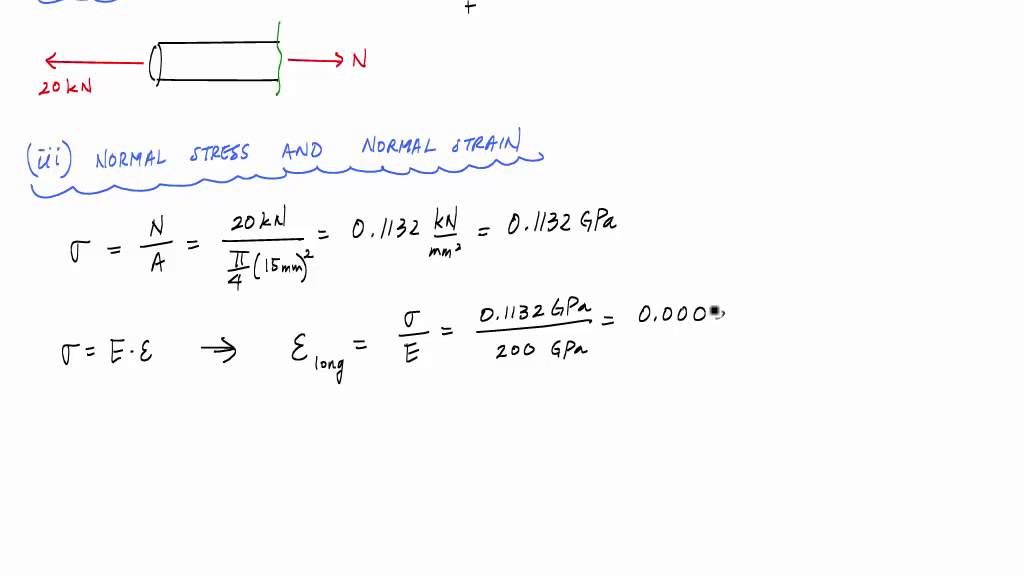 +
20 kN
N
(iii) NORMAL STRESS AND NORMAL STRAIN
σ = N/A = 20 kN / (π/4 (15mm)²) = 0.1132 kN/mm² = 0.1132 GPa
σ = E·ε → ε_long = σ/E = 0.1132 GPa / 200 GPa = 0.000